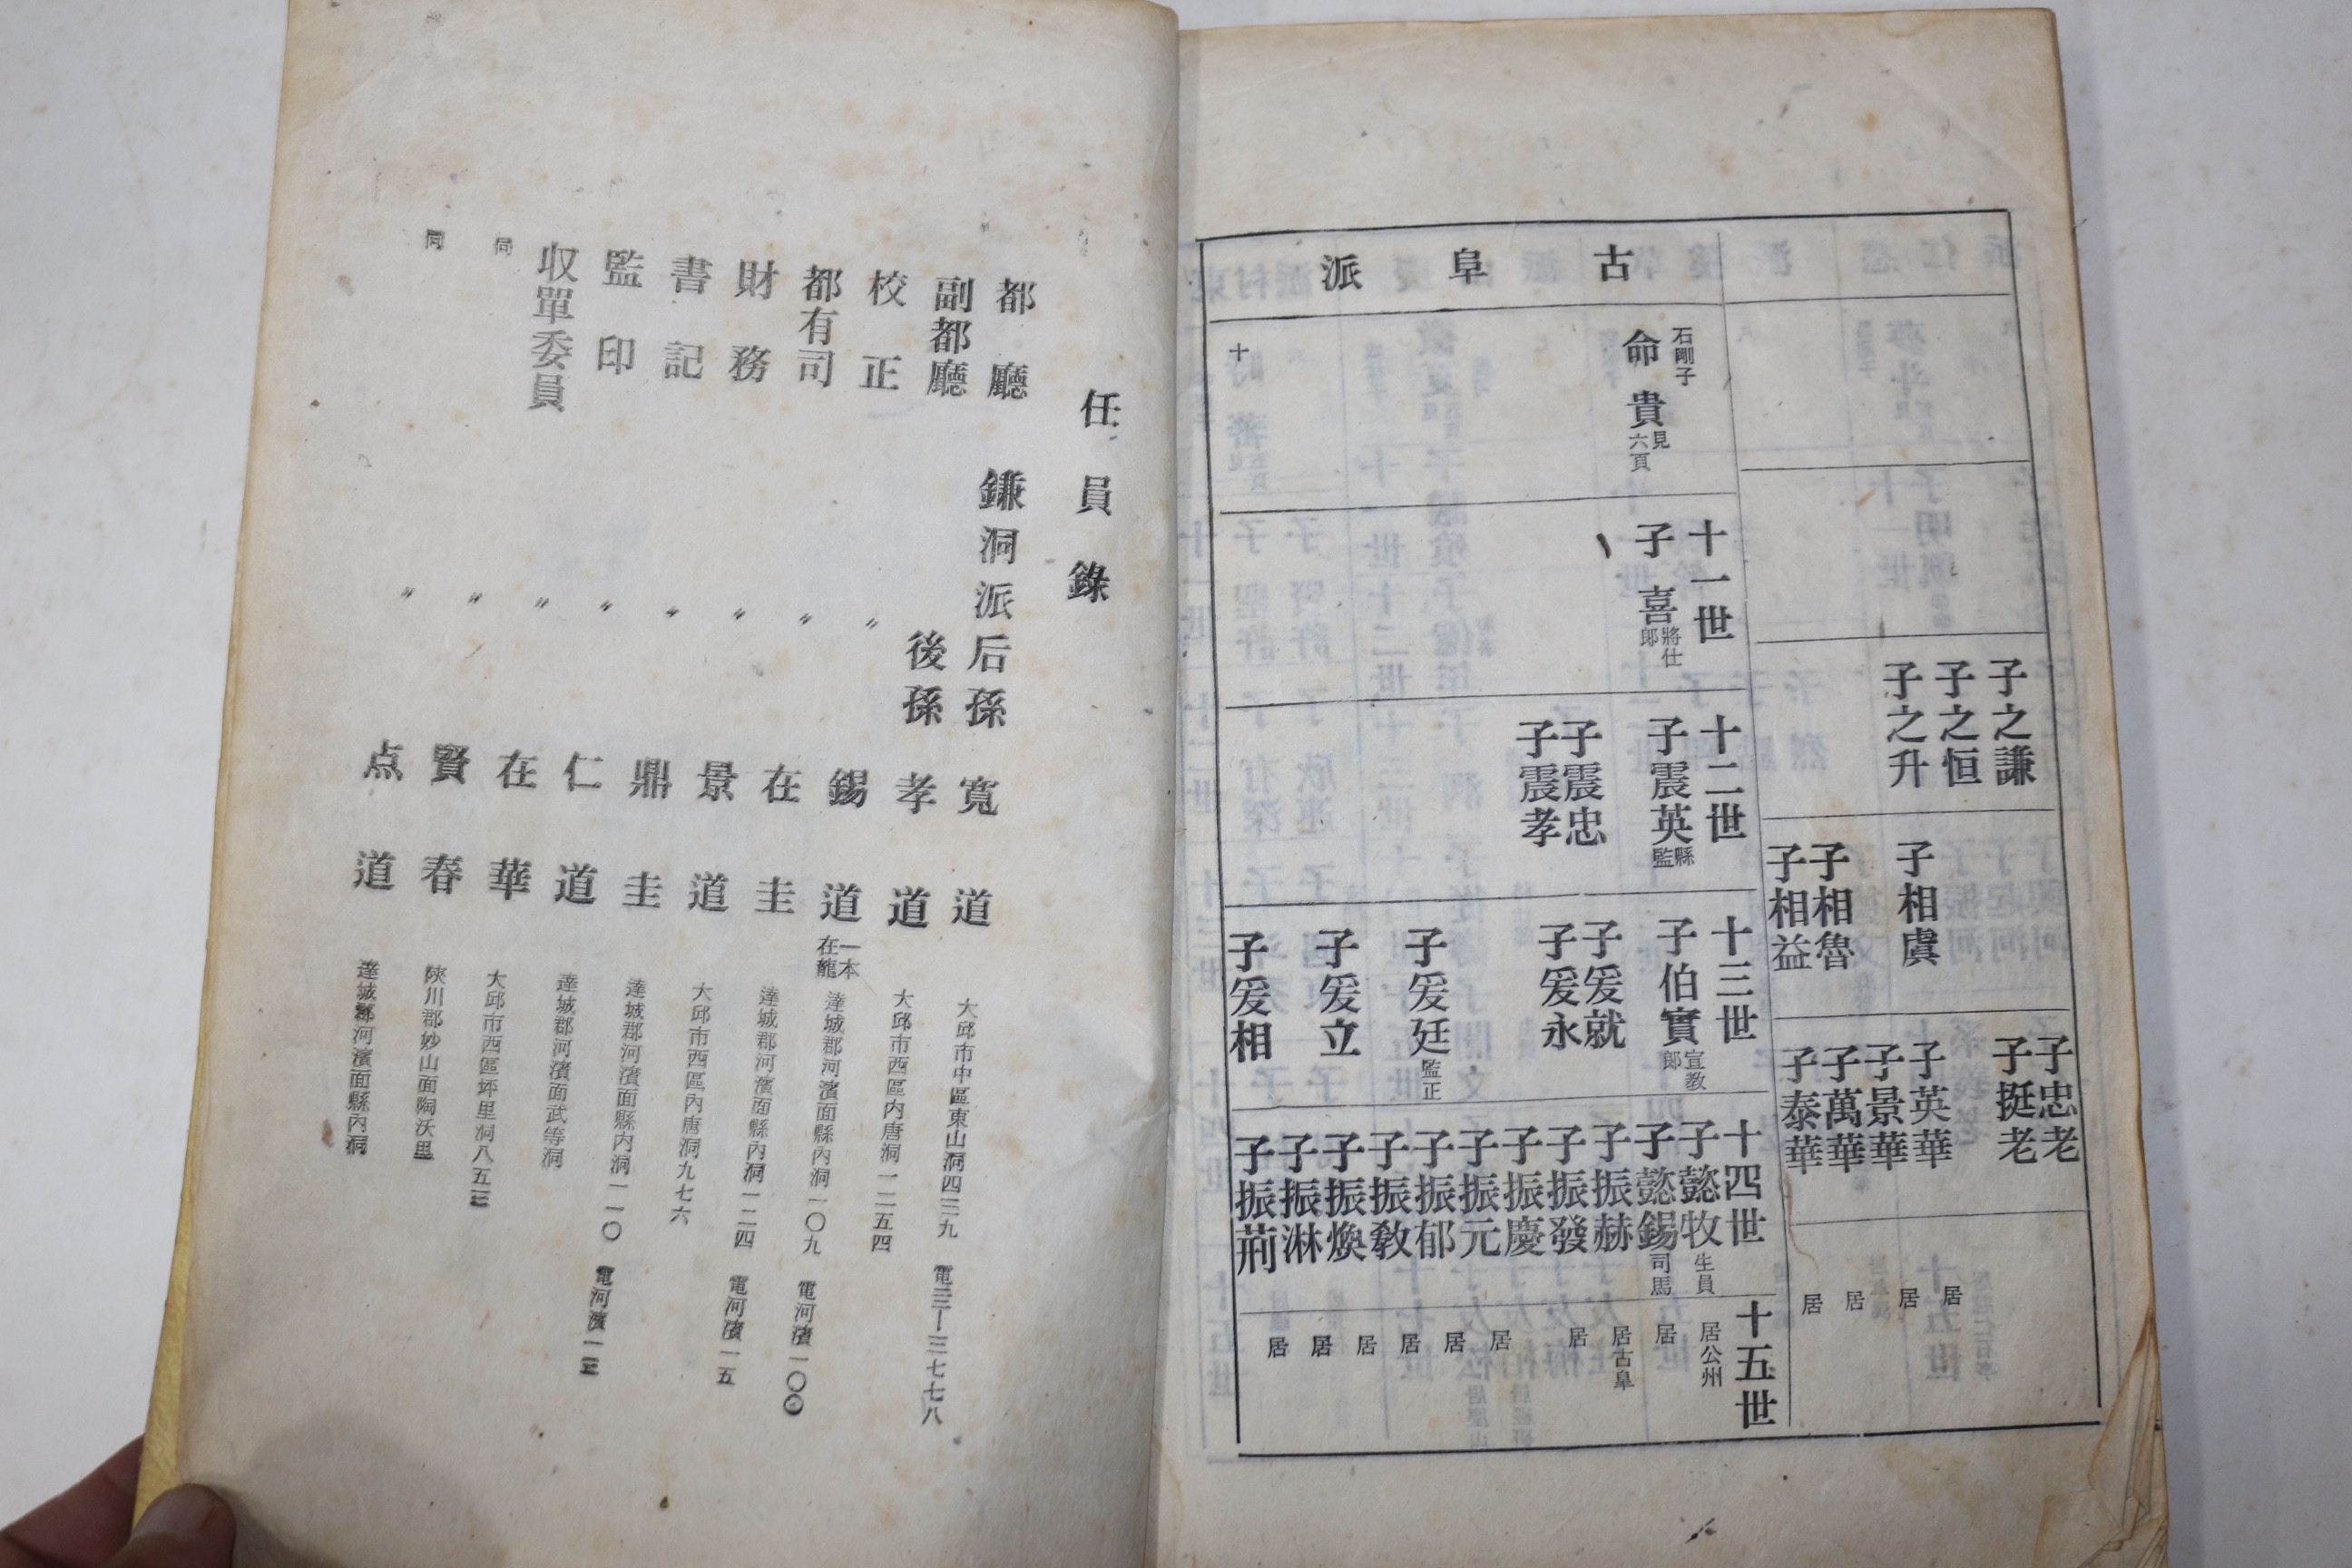 古阜派
石剛子
命貴 見六頁
十
十一世
子喜 將仕郎
十二世
子震英 縣監
子震忠
子震孝
十三世
子伯實 宣教郎
子爰就
子爰永
子爰廷 監正
子爰立
子爰相
十四世
子懿牧 生員
子懿錫 司馬
子振赫
子振發
子振慶
子振元
子振郁
子振敎
子振煥
子振淋
子振荊
十五世
居公州
居
居古阜
居
居
居
居
居
居
居
子之謙
子之恒
子之升
子相虞
子相魯
子相益
子忠老
子挺老
子英華
子景華
子萬華
子泰華
居
居
居
居
任員錄
都廳 鎌洞派后孫 寬道 大邱市中區東山洞四三九 電三ー三七七八
副都廳 後孫 孝道 大邱市西區內唐洞一二五四
校正 〃 錫道 一本在龍 達城郡河濱面縣內洞一〇九 電河濱一〇〇
都有司 〃 在圭 達城郡河濱面縣內洞一二四 電河濱一五
財務 〃 景道 大邱市西區內唐洞九七六
書記 〃 鼎圭 達城郡河濱面縣內洞一一〇 電河濱一三
監印 〃 仁道 達城郡河濱面武等洞
収單委員 〃 在華 大邱市西區坪里洞八五三
同 〃 賢春 陜川郡妙山面陶沃里
同 〃 点道 達城郡河濱面縣內洞